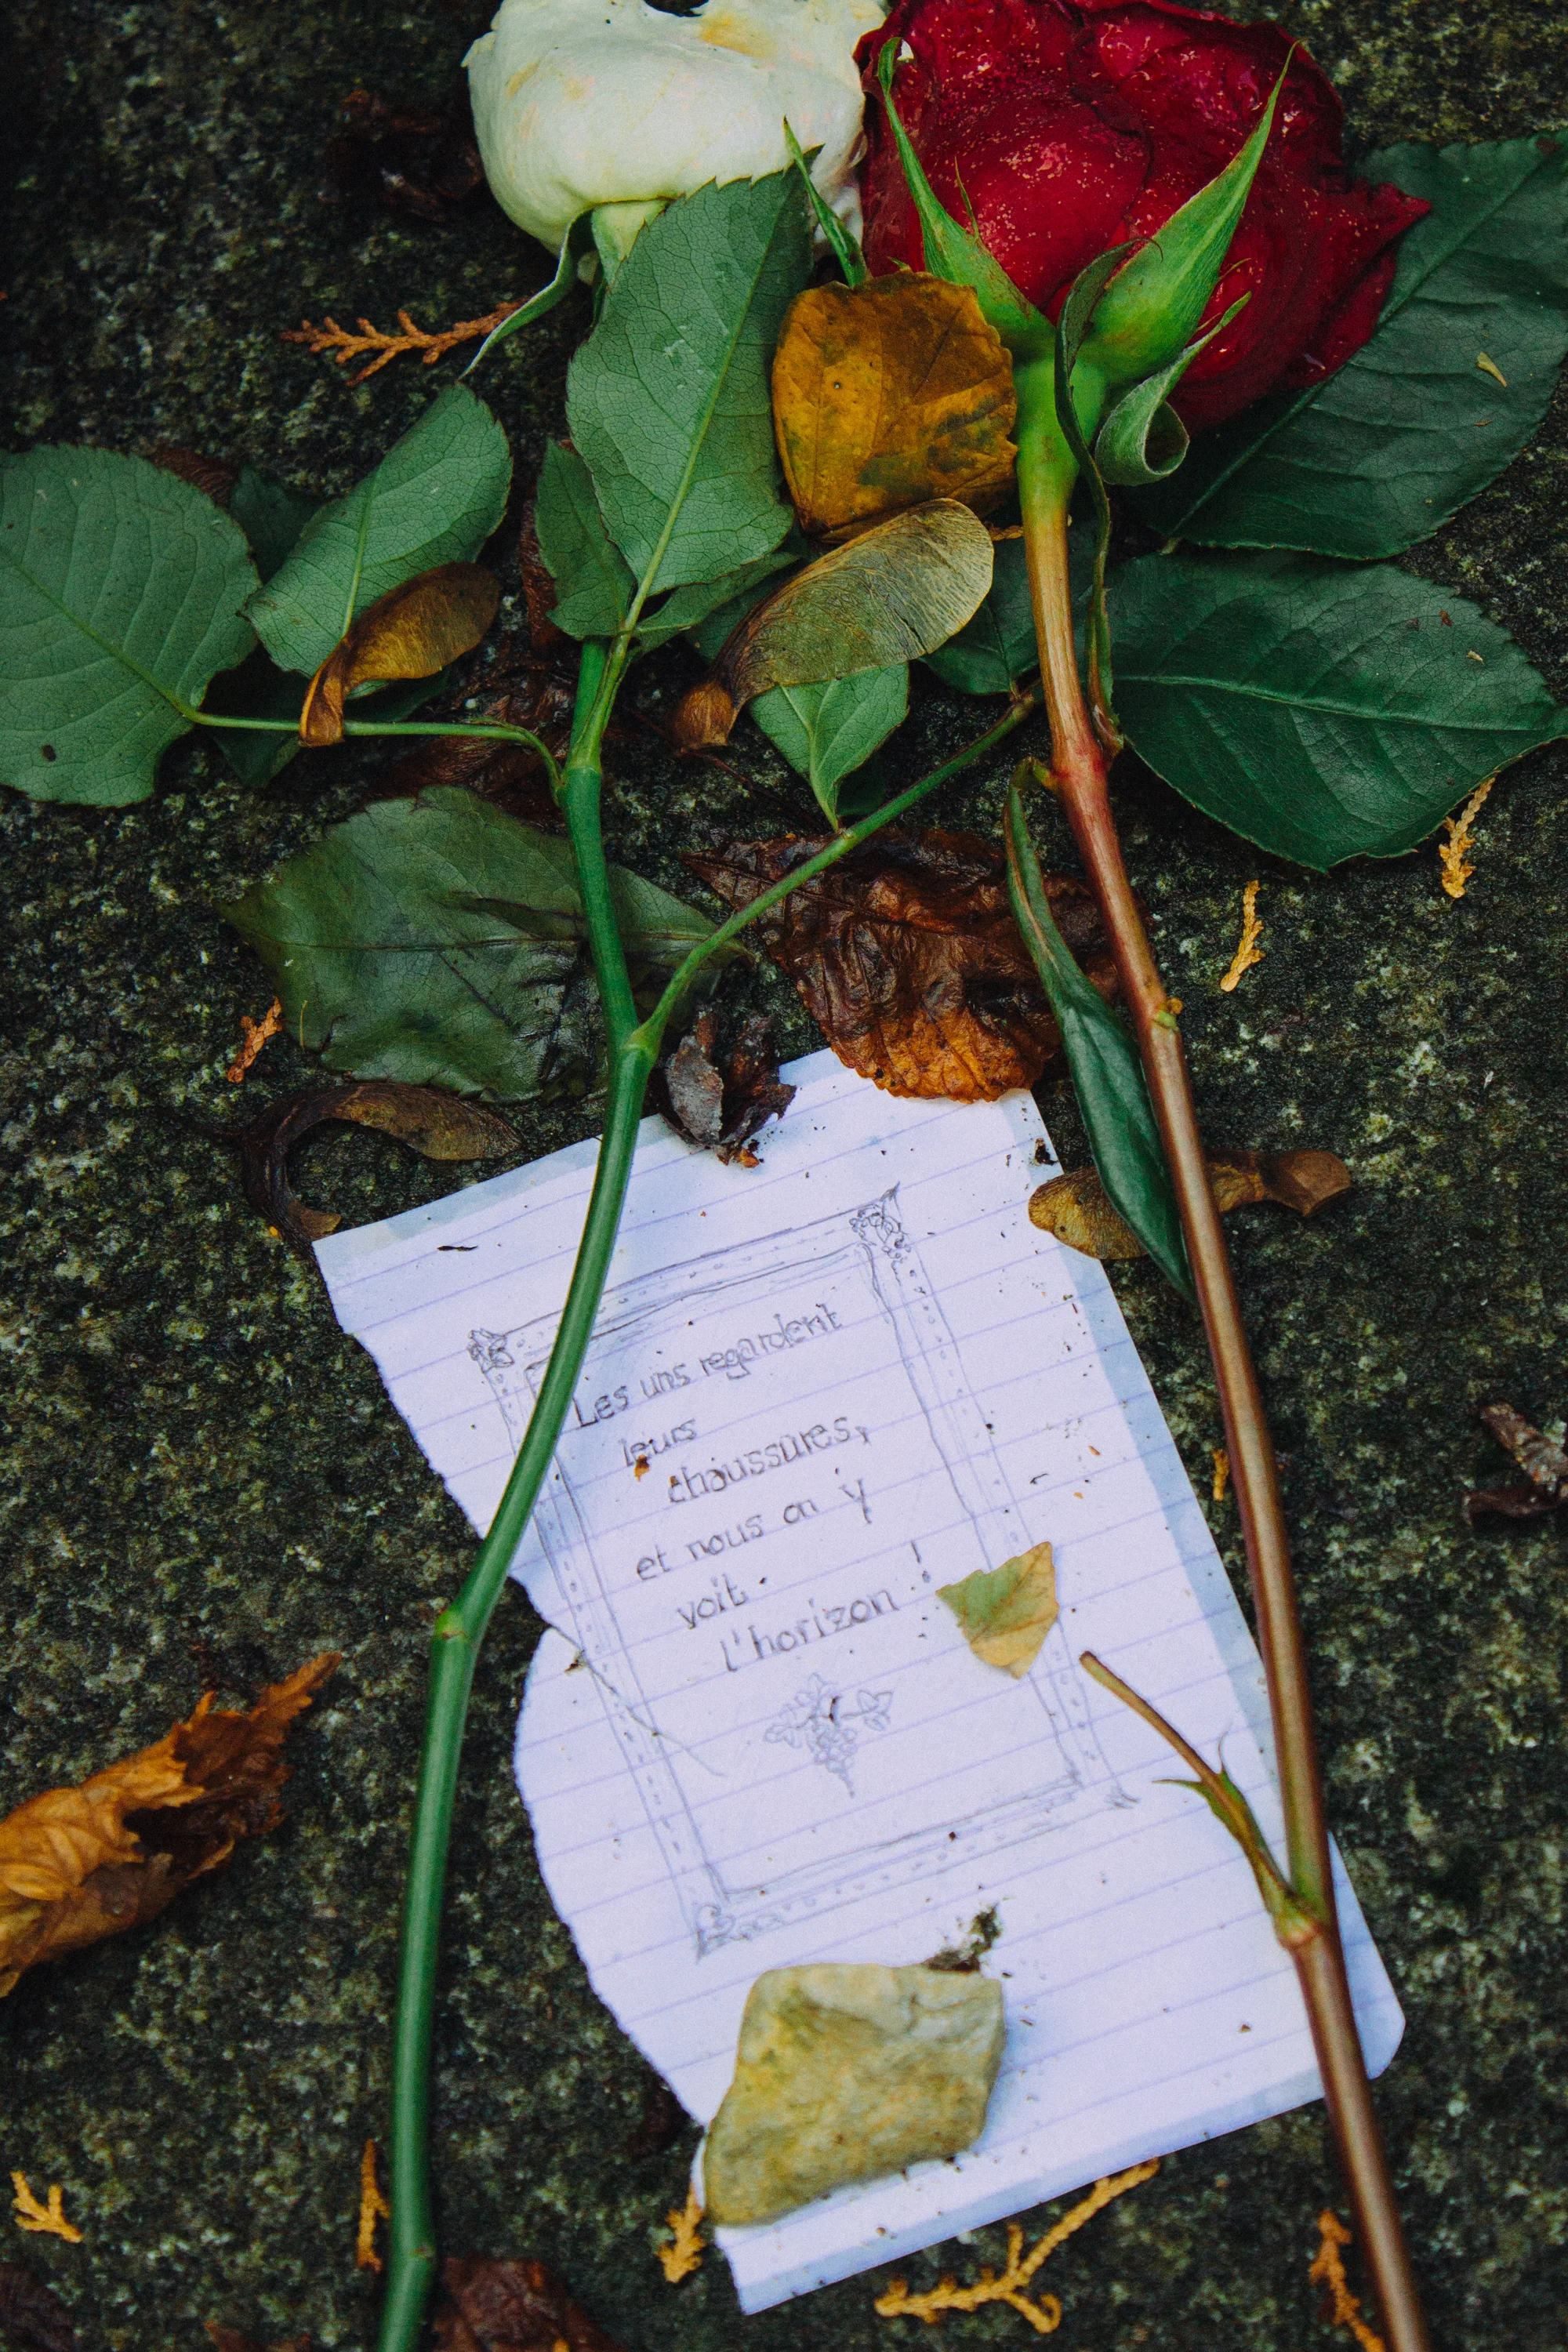 Les uns regardent
leurs
chaussures,
et nous on y
voit
l'horizon !